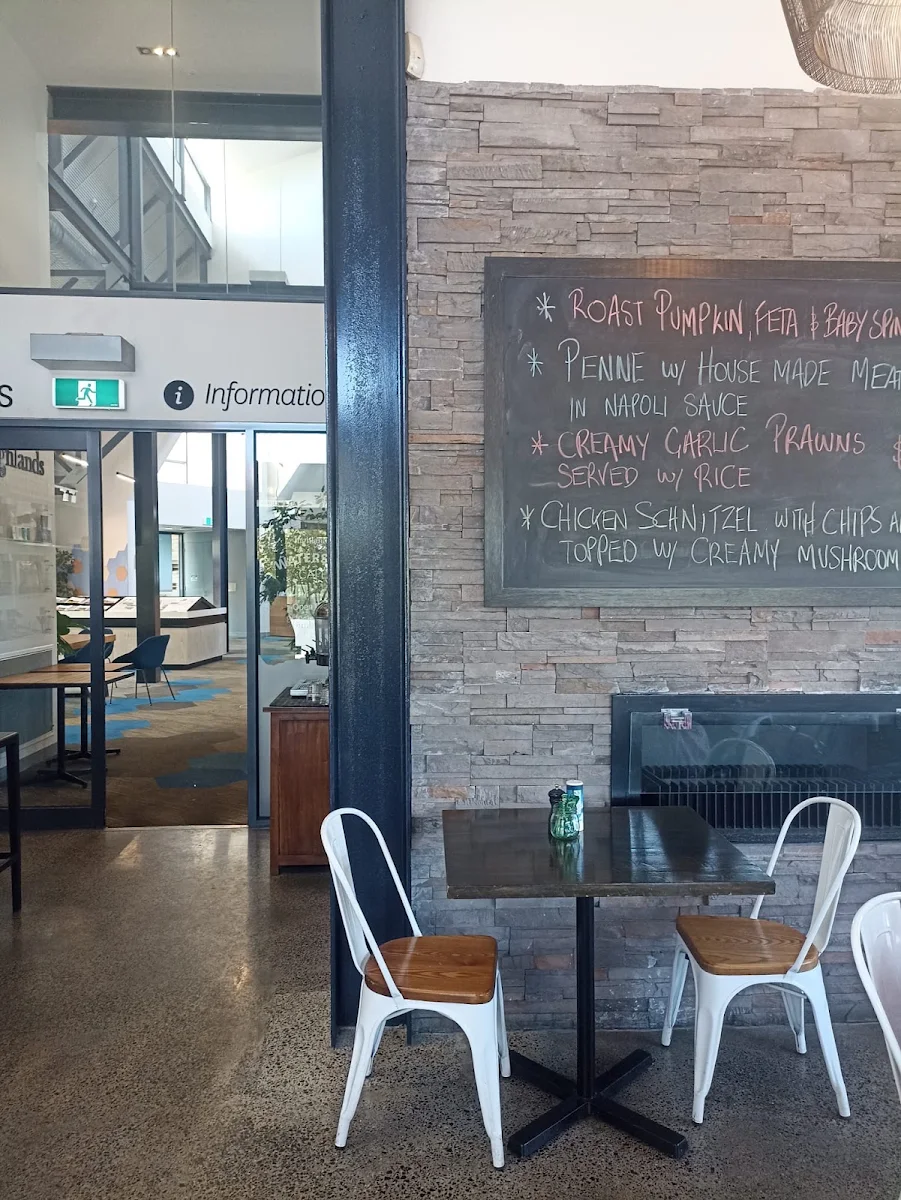 S
i Informatio
ghlands
WATER
* ROAST PUMPKIN, FETA & BABY SPIN
* PENNE w/ HOUSE MADE MEAT
IN NAPOLI SAUCE
* CREAMY GARLIC PRAWNS
SERVED w/ RICE
* CHICKEN SCHNITZEL WITH CHIPS A
TOPPED w/ CREAMY MUSHROOM